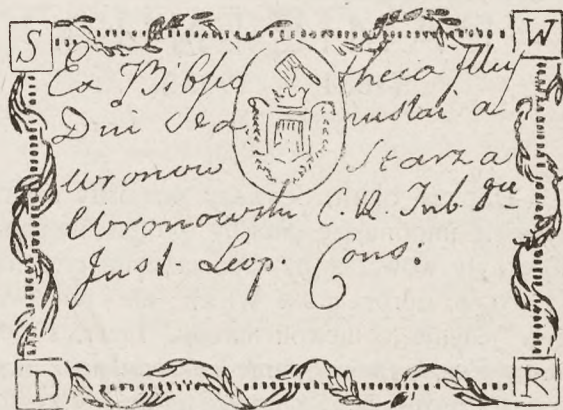 S W
Ex Bibliotheca Illus
Dni Sta nislai a
Wronow Starza
Wronowski C. R. Trib. qu
Just. Leop. Cons:
D R